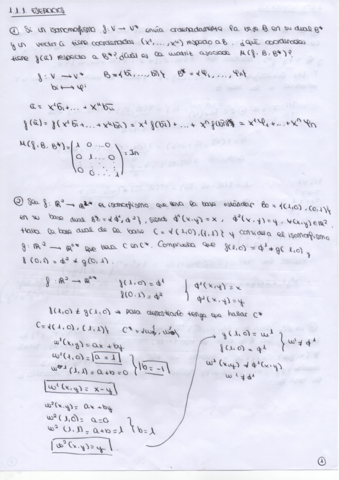 1.1.1 EJERCICIOS
① Si un isomorfismo f: V → V* envía ordenadamente la base B en su dual B*
y un vector ū tiene coordenadas (x¹, ..., xⁿ) respecto a B. ¿qué coordenadas
tiene f(ū) respecto a B*? ¿Cuál es la matriz asociada M(f, B, B*)?
f: V → V* B = {b̄1, ..., b̄n} B* = {φ1, ..., φn}
bi ↦ φi
ū = x¹b̄1 + ... + xⁿb̄n
f(ū) = f(x¹b̄1 + ... + xⁿb̄n) = x¹f(b̄1) + ... + xⁿf(b̄n) = x¹φ1 + ... + xⁿφn
M(f, B, B*) = (1 0 ... 0
0 1 ... 0
0 0 ... 1) = In
② Sea f: R² → R²* el isomorfismo que lleva la base estándar B0 = {(1,0), (0,1)}
en su base dual B0* = {ϕ¹, ϕ²}, siendo ϕ¹(x,y) = x, ϕ²(x,y) = y, ∀(x,y) ∈ R².
Halla la base dual de la base C = {(1,0), (1,1)} y considera el isomorfismo
g: R² → R²* que lleva C en C*. Comprueba que f(1,0) = ϕ¹ ≠ g(1,0),
f(0,1) = ϕ² ≠ g(0,1).
f: R² → R²* f(1,0) = ϕ¹ ϕ¹(x,y) = x
f(0,1) = ϕ² ϕ²(x,y) = y
f(1,0) ≠ g(1,0) → para demostrarlo tengo que hallar C*
C = {(1,0), (1,1)} C* = {w¹, w²}
w¹(x,y) = ax + by
w¹(1,0) = a = 1
w¹(1,1) = a + b = 0 b = -1
w¹(x,y) = x - y
w²(x,y) = ax + by
w²(1,0) = a = 0
w²(1,1) = a + b = 1 b = 1
w²(x,y) = y
g(1,0) = w¹
f(1,0) = ϕ¹ w¹ ≠ ϕ¹
w¹(x,y) ≠ ϕ¹(x,y)
w¹ ≠ ϕ¹